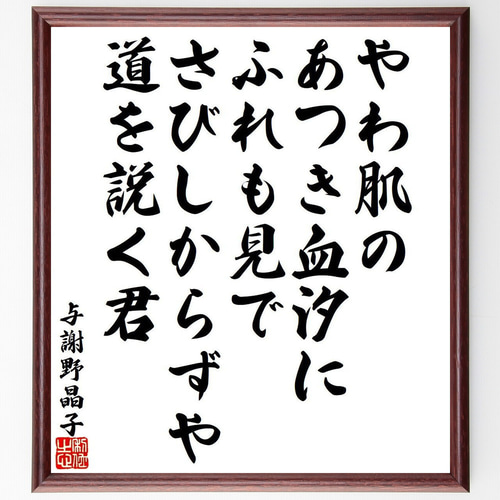 やわ肌の
あつき血汐に
ふれも見で
さびしからずや
道を説く君
与謝野晶子